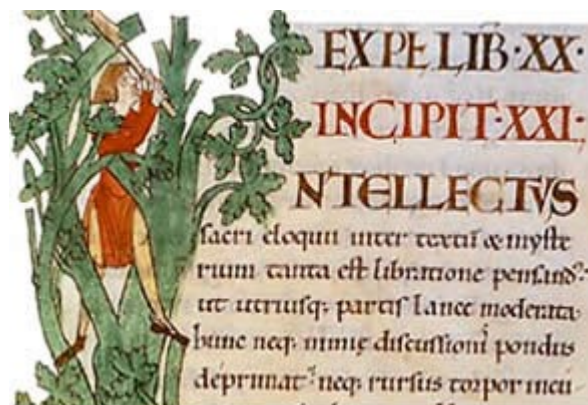 EXPL LIB·XX·
INCIPIT·XXI·
NTELLECTVS
sacri eloquii inter textū & myste
rium tanta est libratione pensand⁹·
ut utriusq; partis lance moderata
hunc neq; nimię discussionī pondus
deprimat· neq; rursus torpor incu